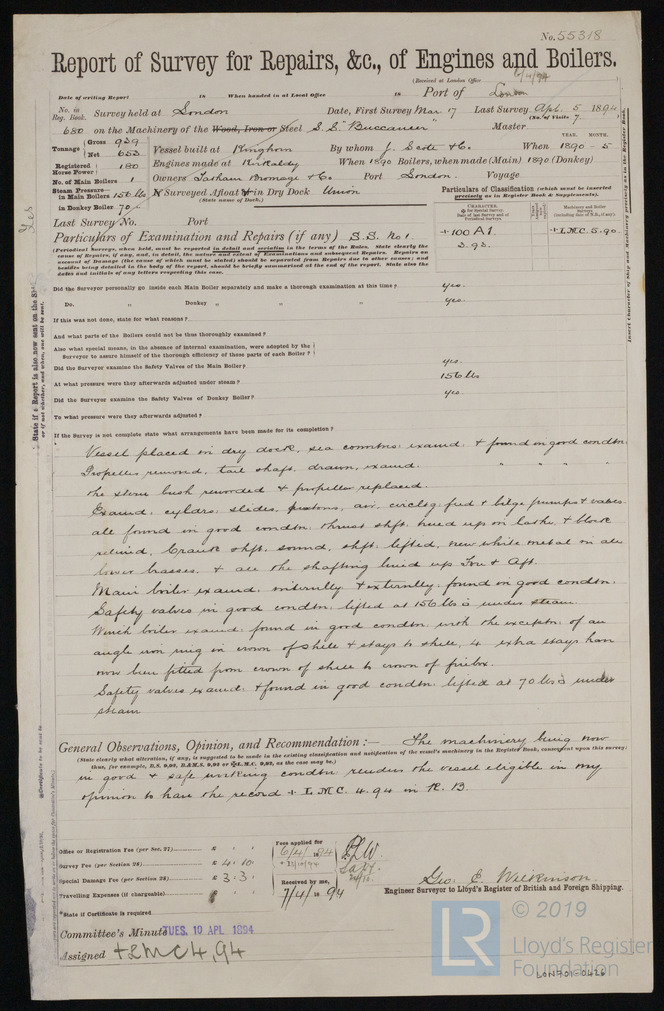 No. 55318
Report of Survey for Repairs, &c., of Engines and Boilers.
(Received at London Office 6/4/94
Date of writing Report 18 When handed in at Local Office 18 Port of London
No. in Reg. Book. Survey held at London Date, First Survey Mar. 17 Last Survey Apl. 5 1894
(No. of Visits 7
680 on the Machinery of the Wood, Iron or Steel S.S. "Buccaneer" Master
Tonnage Gross 939 Net 653 Vessel built at Kinghorn By whom J. Scott & Co. When 1890 - 5
YEAR. MONTH.
Registered Horse Power 180 Engines made at Kirkcaldy When 1890 Boilers, when made (Main) 1890 (Donkey)
No. of Main Boilers 1 Owners Tatham Bromage & Co. Port London. Voyage
Steam Pressure in Main Boilers 156 lbs If Surveyed Afloat or in Dry Dock Union
in Donkey Boiler 70 (State name of Dock.)
Particulars of Classification (which must be inserted precisely as in Register Book & Supplements).
CHARACTER. Machinery and Boiler Surveys (including date of N.B., if any)
+100 A1 +LMC. 5.90
3.93.
Last Survey No. Port
Particulars of Examination and Repairs (if any) S.S. No 1.
(Periodical Surveys, when held, must be reported in detail and seriatim in the terms of the Rules. State clearly the
cause of Repairs, if any, and, in detail, the nature and extent of Examinations and subsequent Repairs. Repairs on
account of Damage (the cause of which must be stated) should be separated from Repairs due to other causes; and
besides being detailed in the body of the report, should be briefly summarised at the end of the report. State also the
dates and initials of any letters respecting this case.
Did the Surveyor personally go inside each Main Boiler separately and make a thorough examination at this time? yes.
Do. " Donkey " " " yes.
If this was not done, state for what reasons?
And what parts of the Boilers could not be thoroughly examined?
Also what special means, in the absence of internal examination, were adopted by the
Surveyor to assure himself of the thorough efficiency of those parts of each Boiler?
Did the Surveyor examine the Safety Valves of the Main Boiler? yes.
At what pressure were they afterwards adjusted under steam? 156 lbs
Did the Surveyor examine the Safety Valves of Donkey Boiler? yes.
To what pressure were they afterwards adjusted?
If the Survey is not complete state what arrangements have been made for its completion?
Vessel placed in dry dock, sea connctns: examd. & found in good condtn:
Propeller removd, tail shaft, drawn, examd. " " " "
the stern bush rewooded & propeller replaced.
Examd: cyldrs: slides, pistons, air, circltg: feed & bilge pumps & valves
all found in good condtn: thrust shft. trued up on lathe, & block
refined. Crank shft. sound, shft. lifted, new white metal on all
lower brasses. & all the shafting lined up For & Aft.
Main boiler examd: internally & externally: found in good condtn:
Safety valves in good condtn: lifted at 156 lbs under steam.
Winch boiler examd: found in good condtn: with the exceptn: of an
angle iron ring in crown of shell & stays to shell, 4 extra stays have
now been fitted from crown of shell to crown of firebox.
Safety valves examd: & found in good condtn: lifted at 70 lbs under
steam
General Observations, Opinion, and Recommendation:— The machinery being now
(State clearly what alteration, if any, is suggested to be made in the existing classification and notification of the vessel's machinery in the Register Book, consequent upon this survey;
in good & safe working condtn renders the vessel eligible in my
opinion to have the record + LMC. 4.94 in R.B.
Office or Registration Fee (per Sec. 27) £
Survey Fee (per Section 28) £ 4. 10.
Special Damage Fee (per Section 28) £ 3. 3.
Travelling Expenses (if chargeable) £
Fees applied for 6/4/1894
Received by me, 7/4/1894
*State if Certificate is required
Geo. E. Wilkinson.
Engineer Surveyor to Lloyd's Register of British and Foreign Shipping.
Committee's Minute TUES. 10 APL 1894
Assigned +LMC 4,94
State if a Report is also now sent on the Ship
or if not, whether, and when, one will be sent.
Yes
Insert Character of Ship and Machinery precisely as in the Register Book.
LR
© 2019
Lloyd's Register
Foundation
LON701-0426